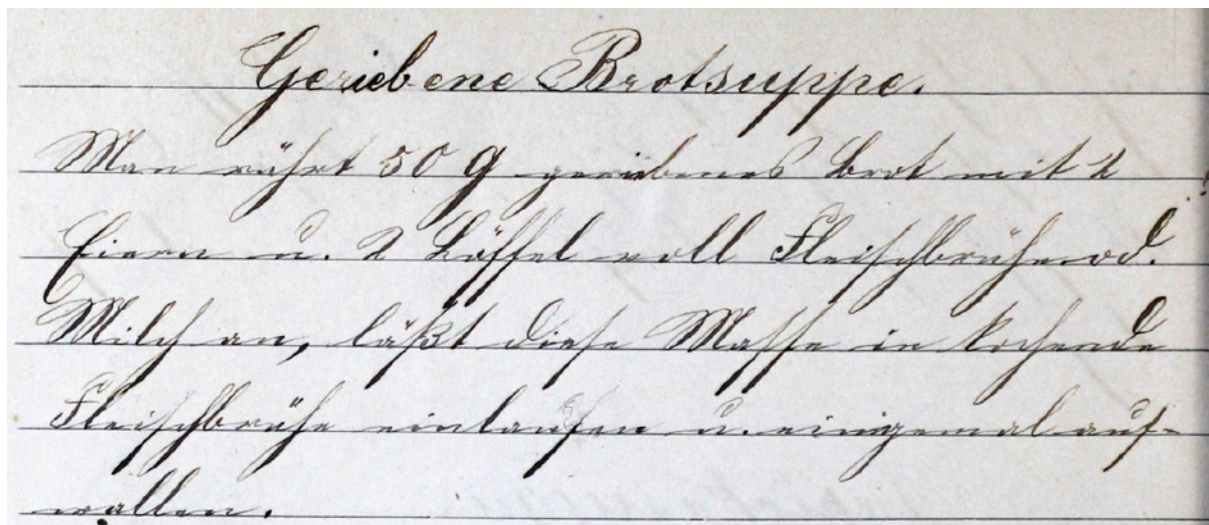 Geriebene Brotsuppe.
Man rührt 50 g geriebenes Brot mit 2
Eiern u. 2 Löffel voll Fleischbrühe od.
Milch an, läßt diese Masse in kochende
Fleischbrühe einlaufen u. einigemal auf-
wallen.